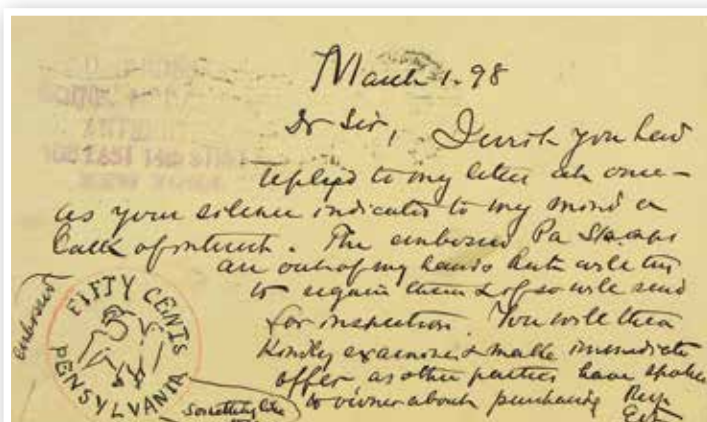 March 1. 98
Dr Sir, I wish you had
replied to my letter at once –
as your silence indicates to my mind a
lack of interest. The embossed Pa stamps
are out of my hands but will try
to regain them & if so will send
for inspection. You will then
Kindly examine & make immediate
offer, as other parties have spoken
to owner about purchasing
embossed
FIFTY CENTS
PENSYLVANIA
Something like